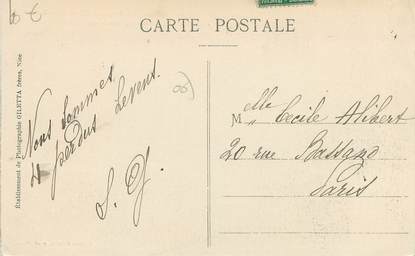 CARTE POSTALE
Établissement de Photographie GILETTA frères, Nice
Nous sommes
perdus Levens.
S. G.
Melle Cecile Alibert
20 rue Bassano
Paris